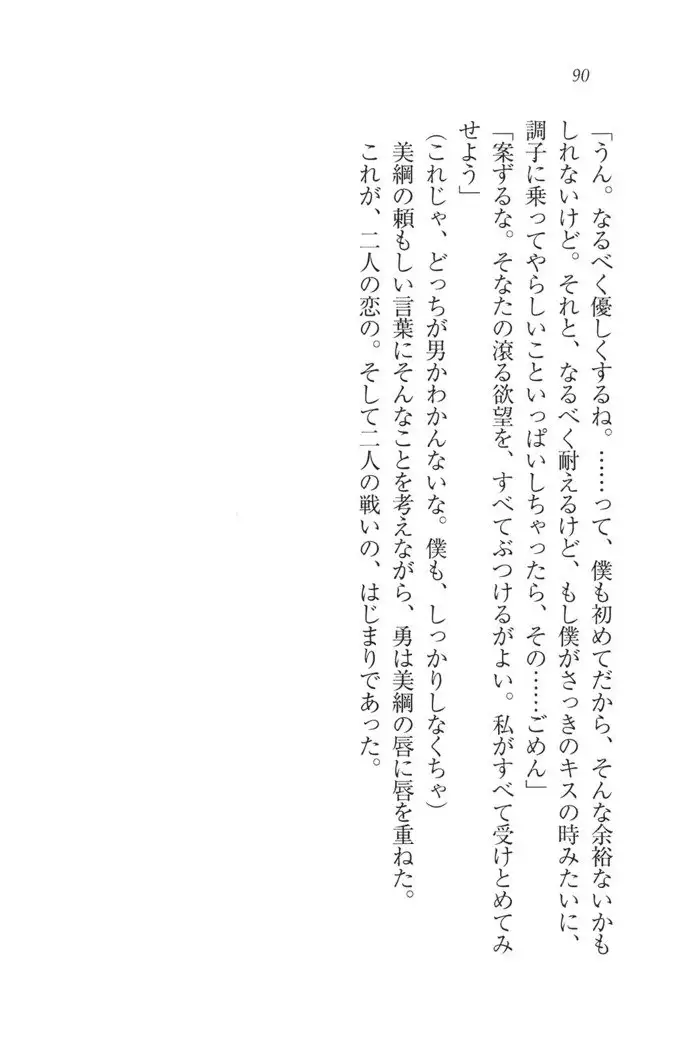 90
「うん。なるべく優しくするね。……って、僕も初めてだから、そんな余裕ないかも
しれないけど。それと、なるべく耐えるけど、もし僕がさっきのキスの時みたいに、
調子に乗ってやらしいこといっぱいしちゃったら、その……ごめん」
「案ずるな。そなたの滾る欲望を、すべてぶつけるがよい。私がすべて受けとめてみ
せよう」
(これじゃ、どっちが男かわかんないな。僕も、しっかりしなくちゃ)
美綱の頼もしい言葉にそんなことを考えながら、勇は美綱の唇に唇を重ねた。
これが、二人の恋の。そして二人の戦いの、はじまりであった。